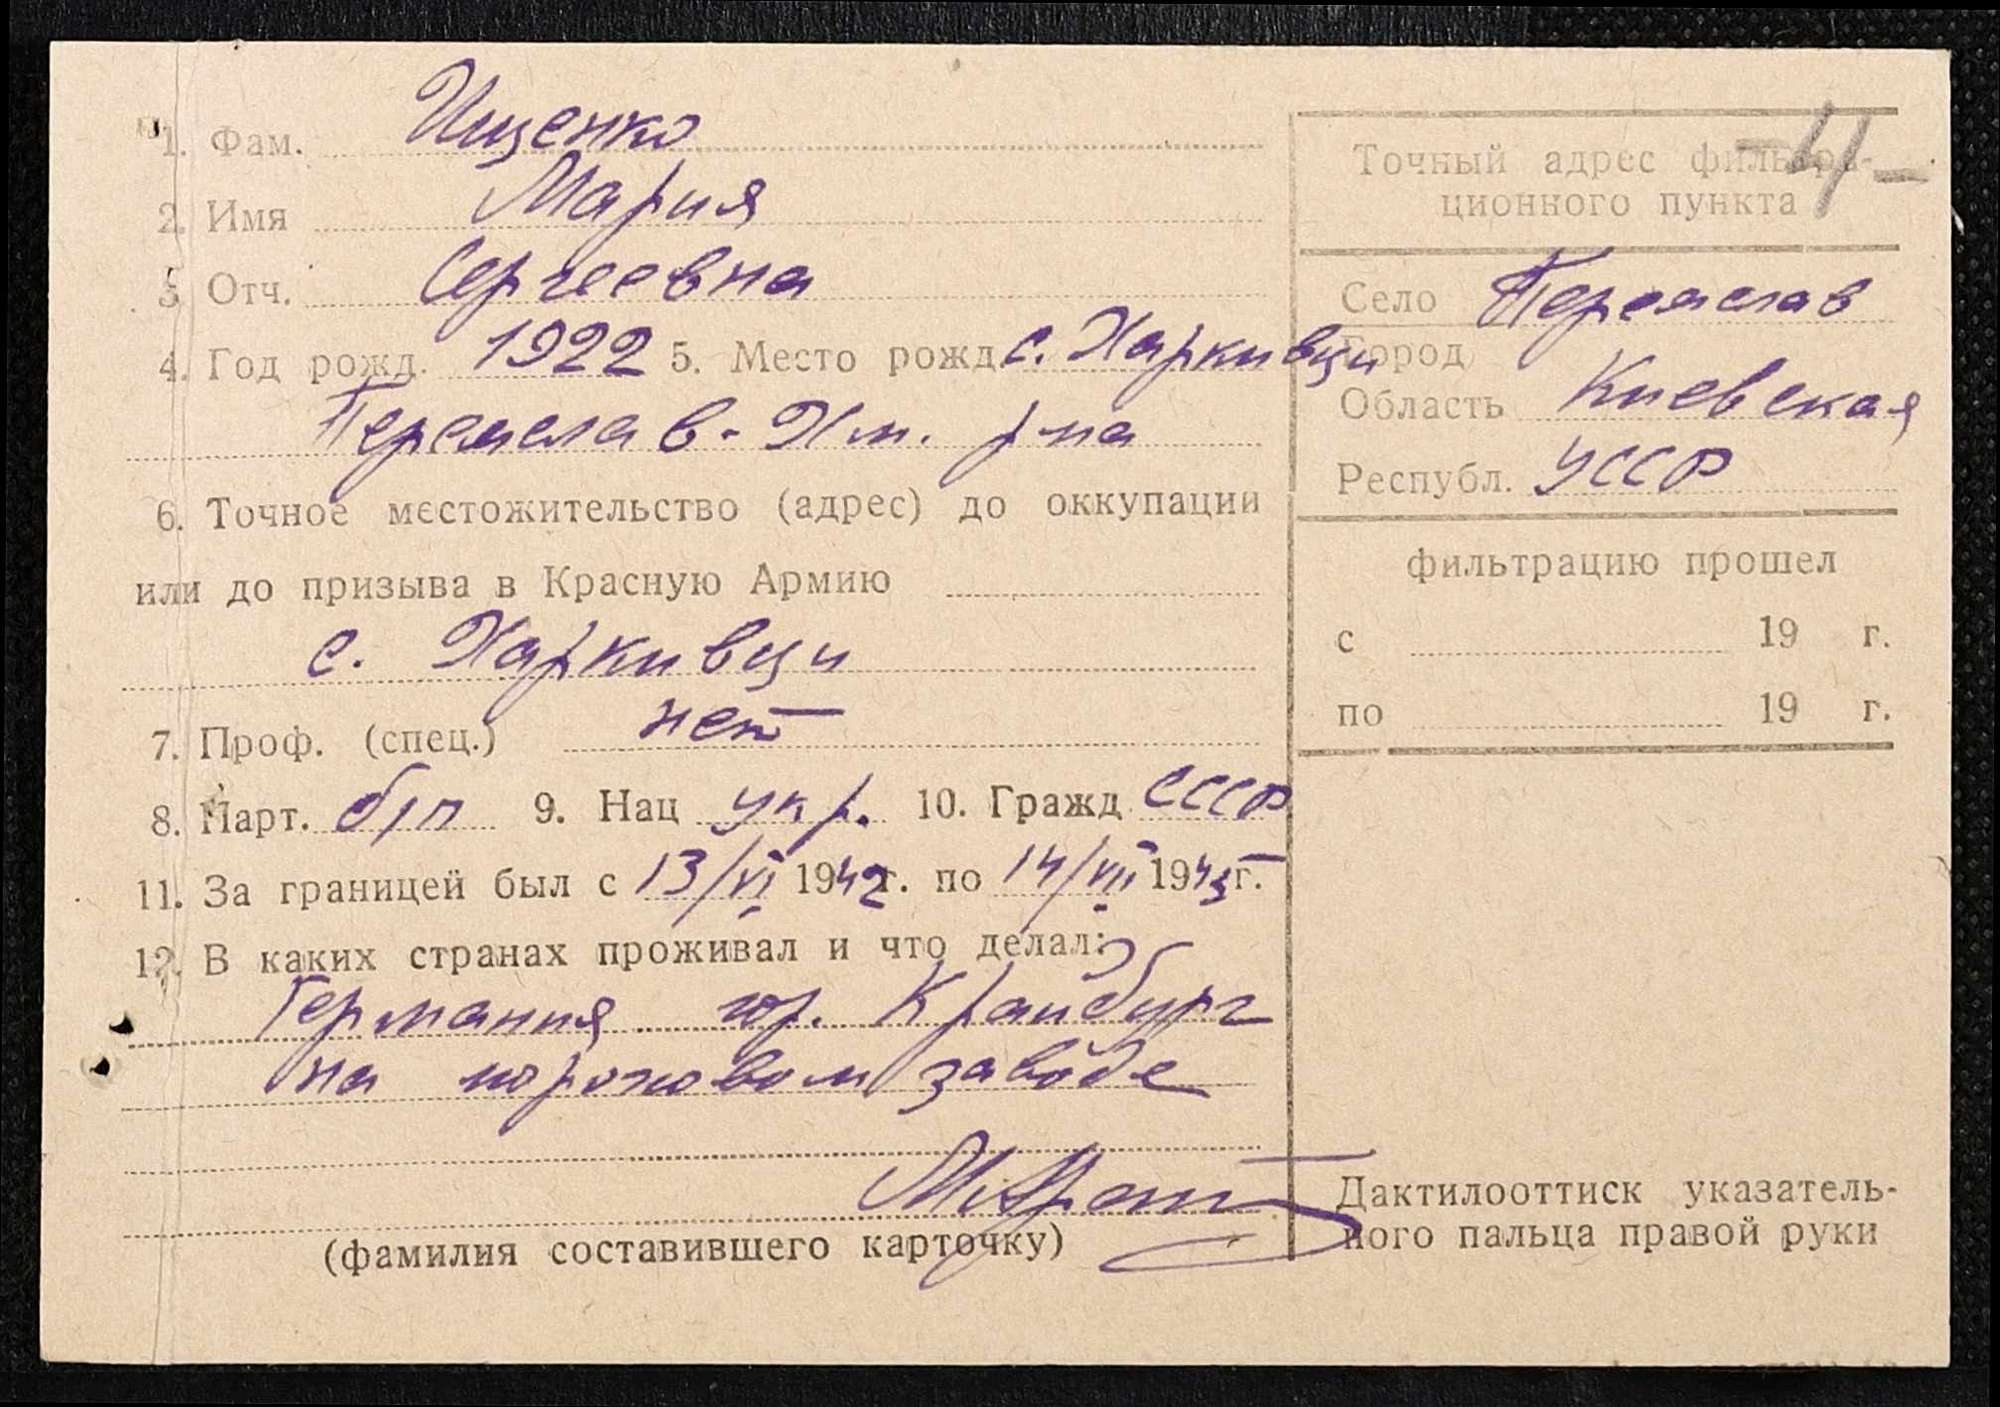 1. Фам. Ищенко
2. Имя Мария
3 Отч. Сергеевна
4. Год рожд. 1922 5. Место рожд. с. Харкивци
Переяслав-Хм. р-на
6. Точное местожительство (адрес) до оккупации
или до призыва в Красную Армию
с. Харкивци
7. Проф. (спец.) нет
8. Парт. б/п 9. Нац укр. 10. Гражд СССР
11. За границей был с 13/VI 1942г. по 14/VIII 1945г.
12. В каких странах проживал и что делал:
Германия гор. Крайбург
на пороховом заводе
(фамилия составившего карточку)
-4-
Точный адрес фильтра-
ционного пункта
Село Переяслав
Город
Область Киевская
Республ. УССР
фильтрацию прошел
с 19 г.
по 19 г.
Дактилооттиск указатель-
ного пальца правой руки